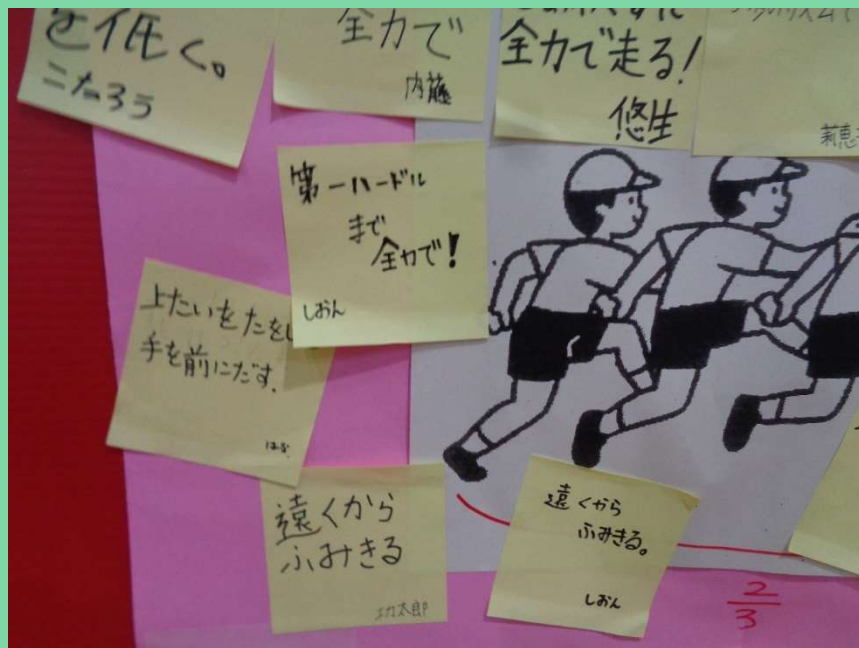 を低く。
こたろう
全力で
内藤
全力で走る!
悠生
第一ハードル
まで
全力で!
しおん
上たいをたをし
手を前にだす.
はる
遠くから
ふみきる
功太郎
遠くから
ふみきる。
しおん
2
3